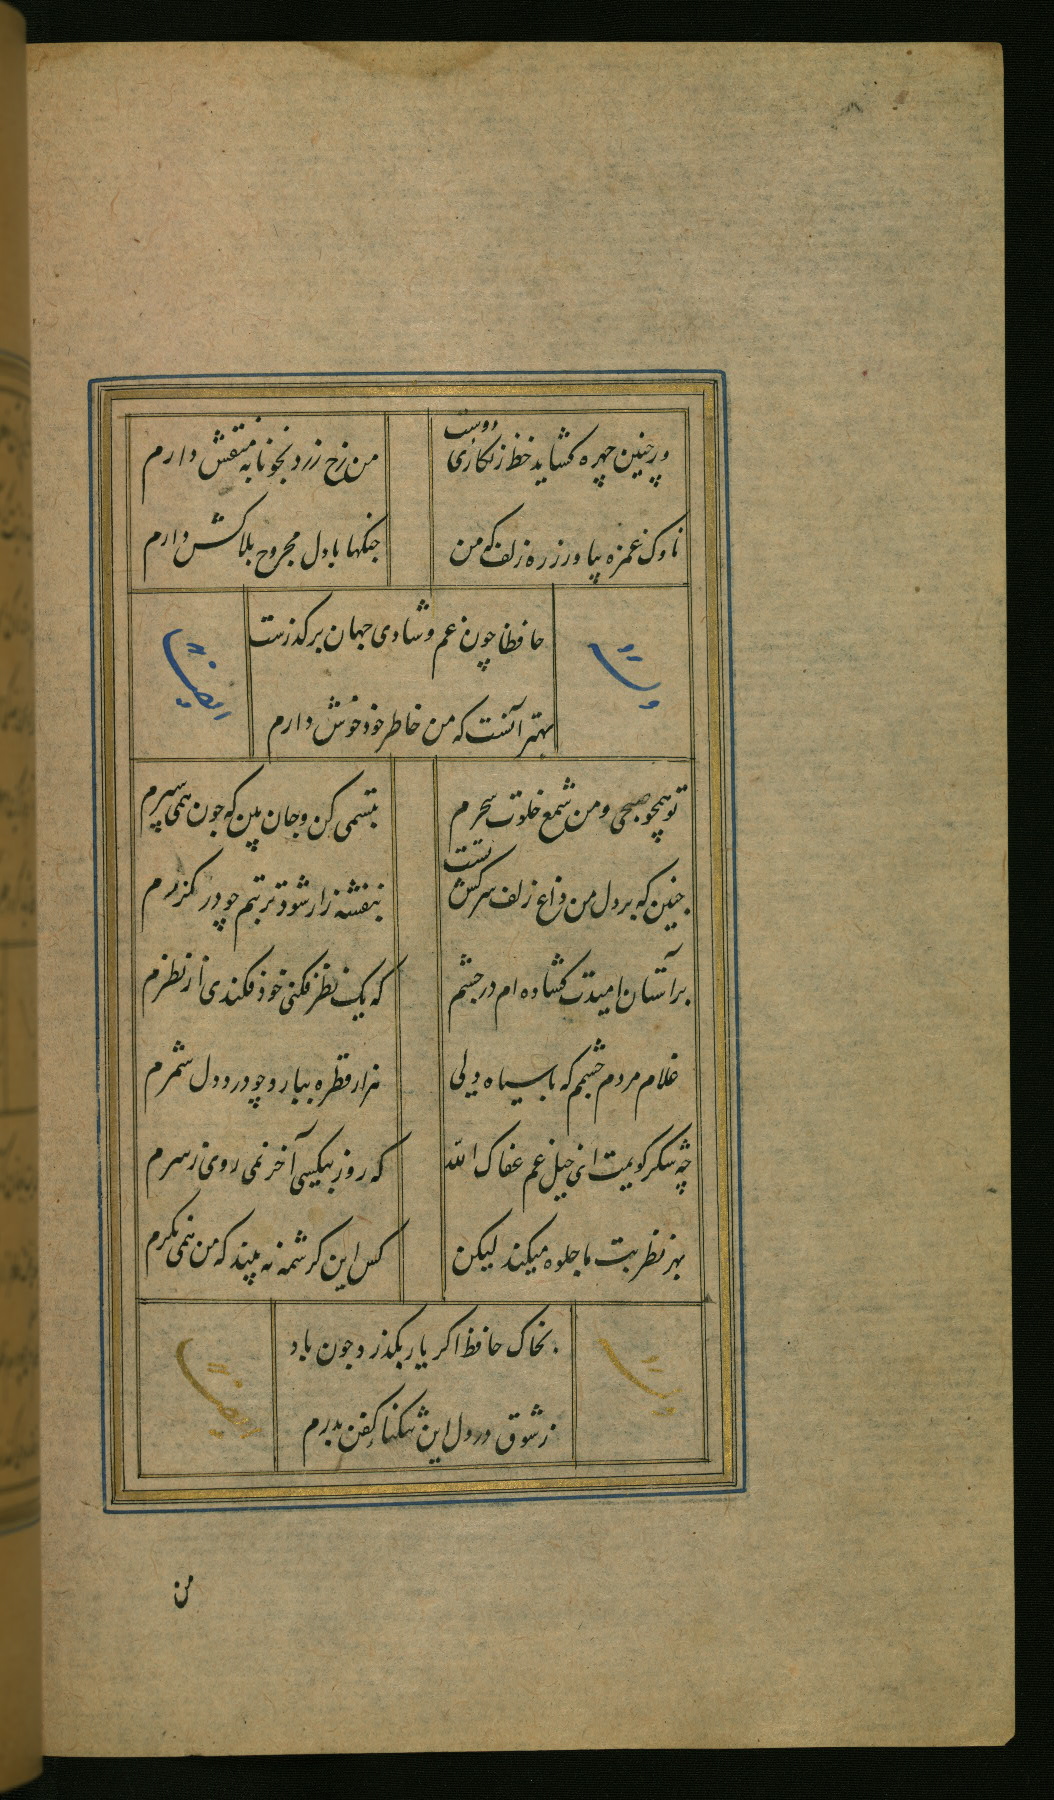 ور چنین چهره کشاید خط زنکاری دوست
من رخ زرد بخونابه منقش دارم
ناوک غمزه بیاور زره زلف که من
جنکها با دل مجروح بلاکش دارم
حافظا چون غم و شادی جهان برکذرست
بهتر آنست که من خاطر خود خوش دارم
وله
ایضا
تو همچو صبحی و من شمع خلوت سحرم
تبسمی کن و جان بین که چون همی سپرم
چنین که بر دل من داغ زلف سرکش تست
بنفشه زار شود تربتم چو در کذرم
بر آستان امیدت کشاده ام در چشم
که یک نظر فکنی خود فکندی از نظرم
غلام مردم چشمم که با سیاه دلی
هزار قطره ببارد چو درد دل شمرم
چه شکر کویمت ای خیل غم عفاک الله
که روز بیکسی آخر نمی روی ز سرم
بهر نظر بت ما جلوه میکند لیکن
کس این کرشمه نه بیند که من همی نکرم
بخاک حافظ اکر یار بکذرد چون باد
ز شوق در دل این تنکنا کفن بدرم
ایضا
من